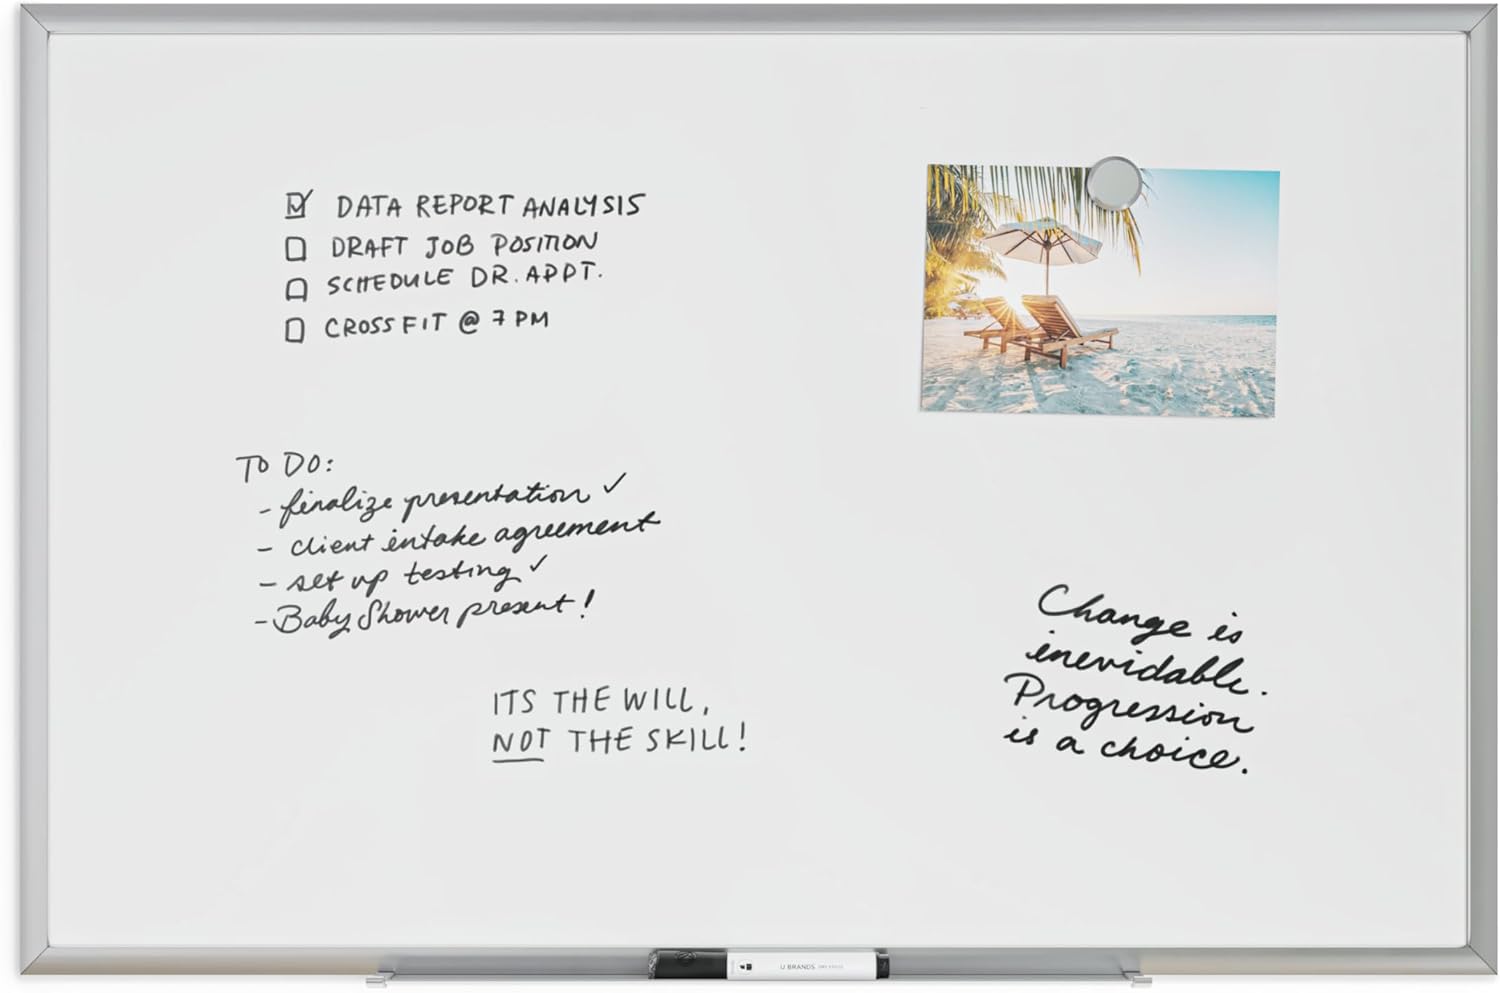 DATA REPORT ANALYSIS
DRAFT JOB POSITION
SCHEDULE DR. APPT.
CROSSFIT @ 7 PM
TO DO:
- finalize presentation ✓
- client intake agreement
- set up testing ✓
- Baby Shower present!
ITS THE WILL,
NOT THE SKILL!
Change is
inevidable.
Progression
is a choice.
U BRANDS